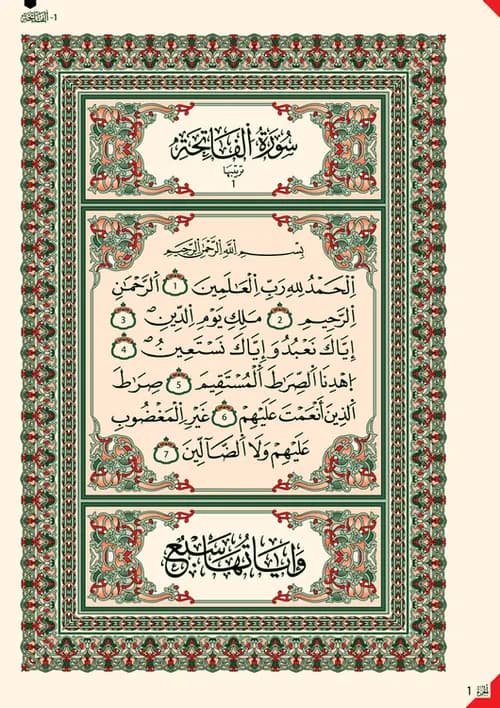 1- الفاتحة
سُورَةُ الْفَاتِحَةِ
ترتيبها
1
بِسْمِ اللَّهِ الرَّحْمَٰنِ الرَّحِيمِ
اَلْحَمْدُ لِلهِ رَبِّ اِلْعَٰلَمِينَ 1 اَلرَّحْمَٰنِ
اِلرَّحِيمِ 2 مَلِكِ يَوْمِ اِلدِّينِ 3
إِيَّاكَ نَعْبُدُ وَإِيَّاكَ نَسْتَعِينُ 4
اِهْدِنَا اَلصِّرَٰطَ اَلْمُسْتَقِيمَ 5 صِرَٰطَ
اَلذِينَ أَنْعَمْتَ عَلَيْهِمْ 6 غَيْرِ اِلْمَغْضُوبِ
عَلَيْهِمْ وَلَا اَلضَّآلِّينَ 7
وَاٰيَاتُهَا سَبْعٌ
1 الجزء